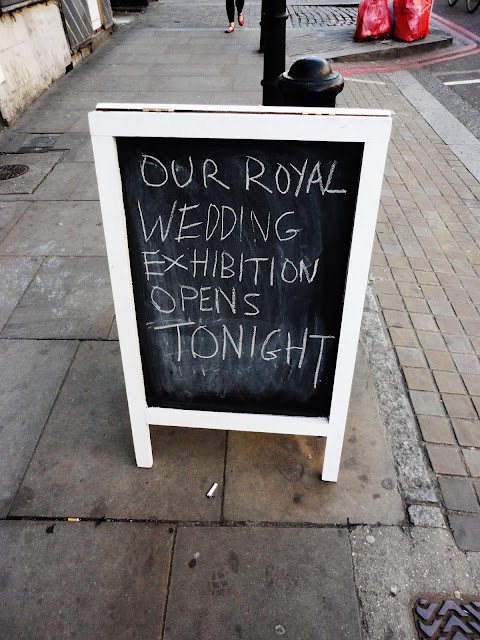 OUR ROYAL
WEDDING
EXHIBITION
OPENS
TONIGHT